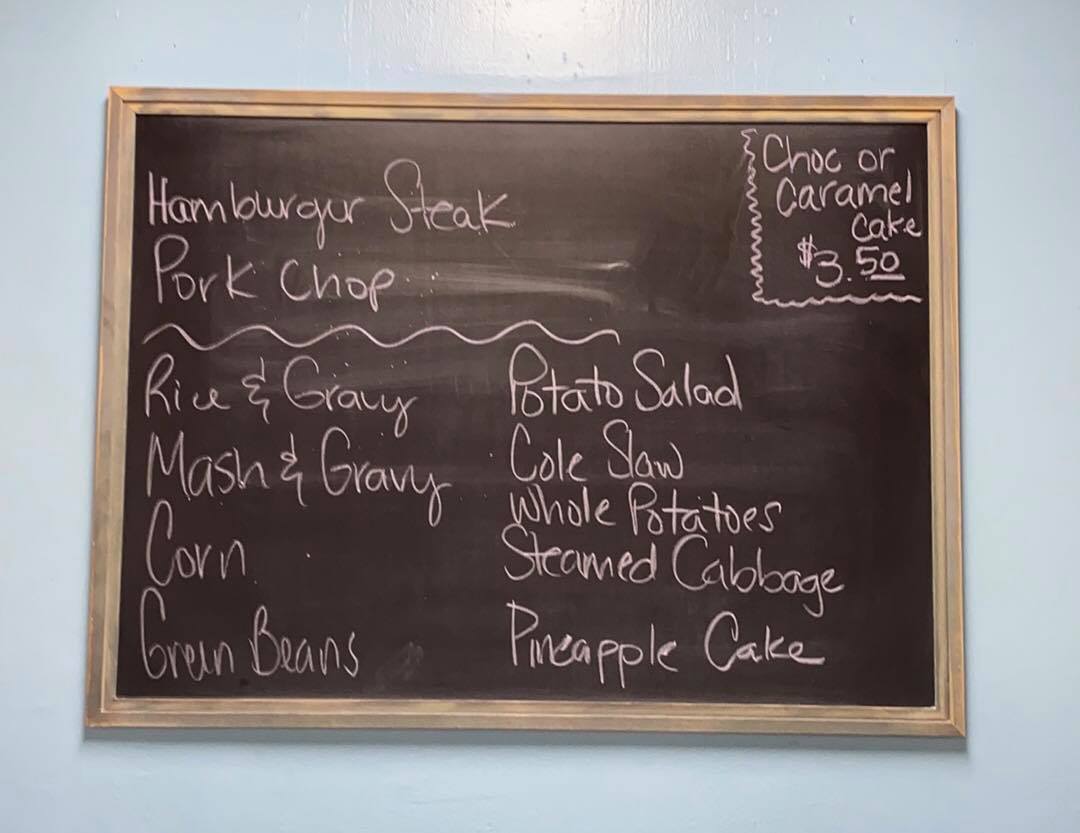 Hamburgur Steak
Pork Chop
Choc or
Caramel
Cake
$3.50
Rice & Gravy
Mash & Gravy
Corn
Green Beans
Potato Salad
Cole Slaw
Whole Potatoes
Steamed Cabbage
Pineapple Cake